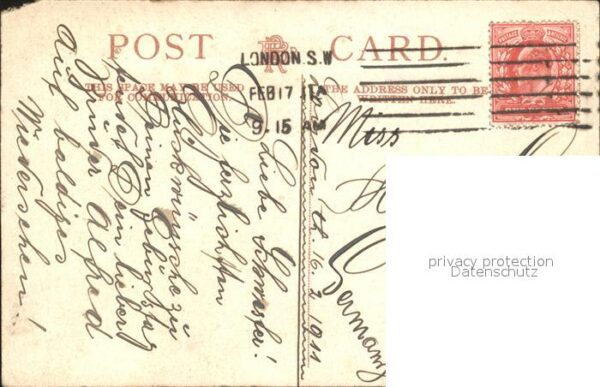 POST CARD.
THIS SPACE MAY BE USED
FOR COMMUNICATION.
THE ADDRESS ONLY TO BE
WRITTEN HERE.
LONDON S.W
FEB 17 11
9.15 AM
London th. 16.2.1911
Liebe Schwester!
Die herzlichsten
Glückwünsche zu
Deinem Geburtstag
sendet Dein lieber
Bruder Alfred
Auf baldiges
Wiedersehen!
Miss
Germany
privacy protection
Datenschutz